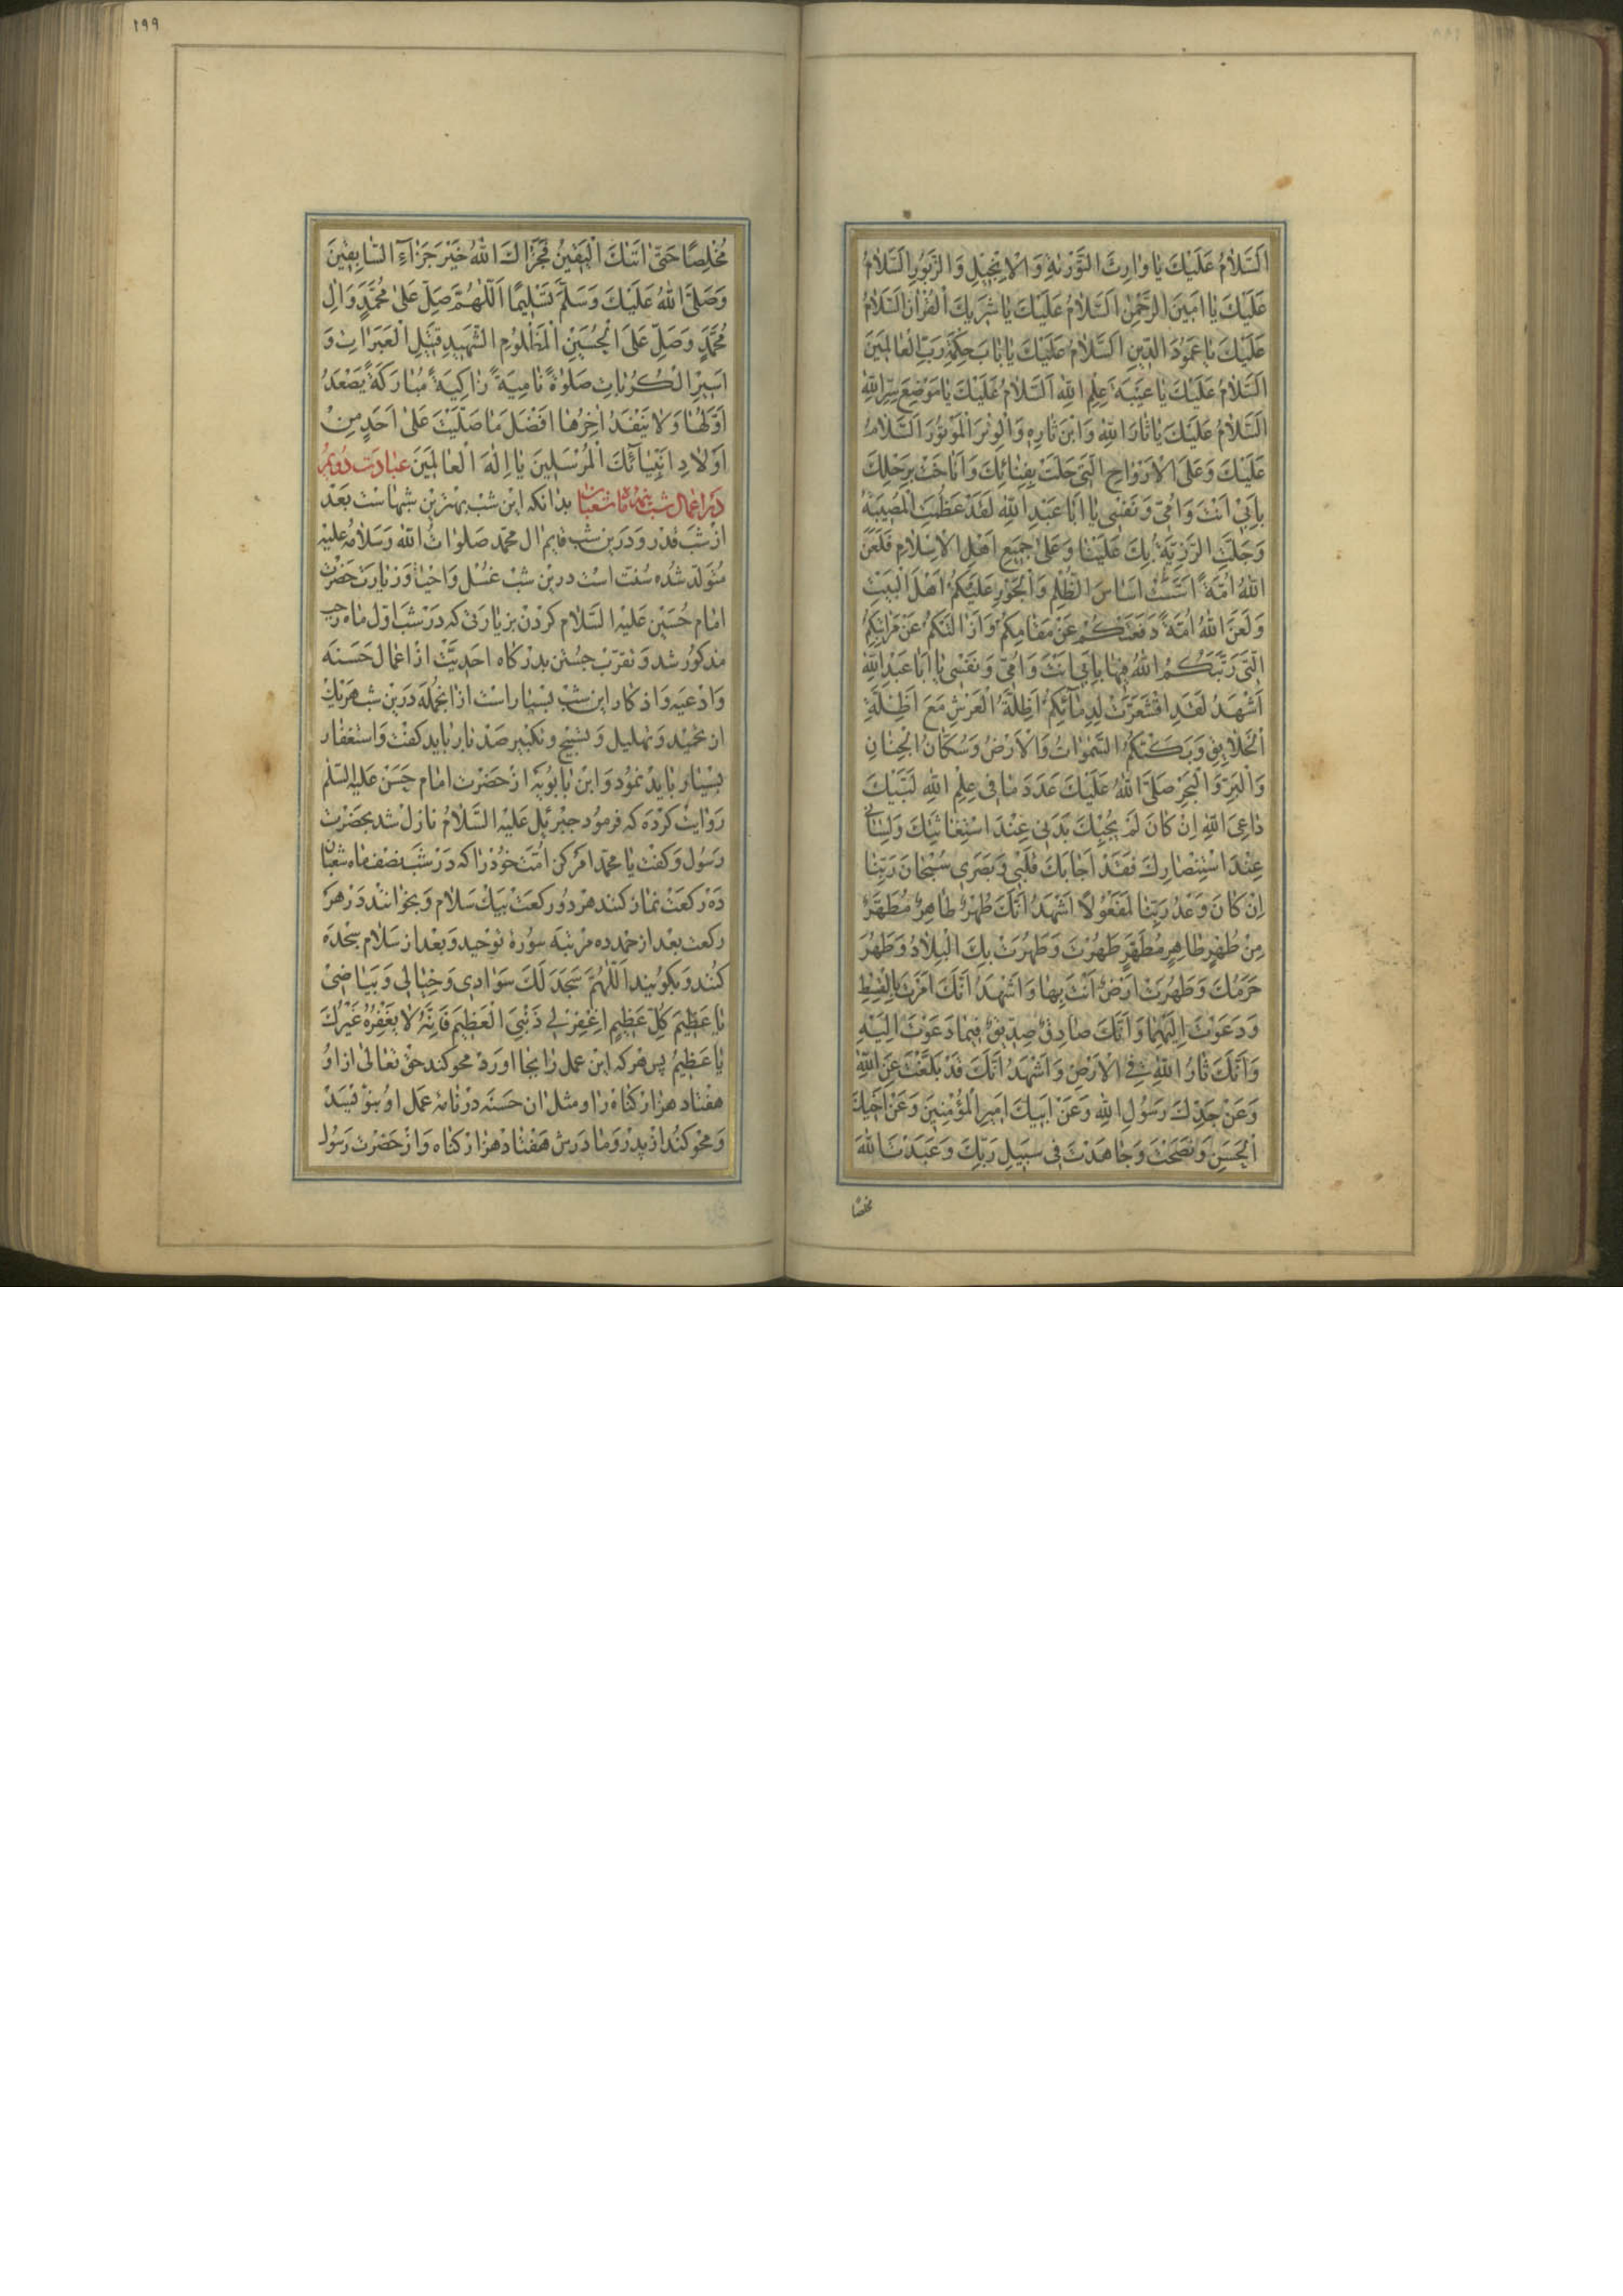 اَلسَّلامُ عَلَيْكَ يا وارِثَ التَّوْرٰيةِ وَالْاِنْجيلِ وَالزَّبُورِ اَلسَّلامُ
عَلَيْكَ يا اَمينَ الرَّحْمٰنِ اَلسَّلامُ عَلَيْكَ يا شَريكَ الْقُرْانِ اَلسَّلامُ
عَلَيْكَ يا عَمُودَ الدّينِ اَلسَّلامُ عَلَيْكَ يا بابَ حِكْمَةِ رَبِّ الْعالَمينَ
اَلسَّلامُ عَلَيْكَ يا عَيْبَةَ عِلْمِ اللهِ اَلسَّلامُ عَلَيْكَ يا مَوْضِعَ سِرِّ اللهِ
اَلسَّلامُ عَلَيْكَ يا ثارَ اللهِ وَابْنَ ثارِهِ وَالْوِتْرَ الْمَوْتُورَ اَلسَّلامُ
عَلَيْكَ وَعَلَى الْاَرْواحِ الَّتي حَلَّتْ بِفِنائِكَ وَاَناخَتْ بِرَحْلِكَ
بِاَبي اَنْتَ وَاُمّي وَنَفْسي يا اَبا عَبْدِ اللهِ لَقَدْ عَظُمَتِ الْمُصيبَةُ
وَجَلَّتِ الرَّزِيَّةُ بِكَ عَلَيْنا وَعَلى جَميعِ اَهْلِ الْاِسْلامِ فَلَعَنَ
اللهُ اُمَّةً اَسَّسَتْ اَساسَ الظُّلْمِ وَالْجَوْرِ عَلَيْكُمْ اَهْلَ الْبَيْتِ
وَلَعَنَ اللهُ اُمَّةً دَفَعَتْكُمْ عَنْ مَقامِكُمْ وَاَزالَتْكُمْ عَنْ مَراتِبِكُمُ
الَّتي رَتَّبَكُمُ اللهُ فيها بِاَبي اَنْتَ وَاُمّي وَنَفْسي يا اَبا عَبْدِ اللهِ
اَشْهَدُ لَقَدِ اقْشَعَرَّتْ لِدِمآئِكُمْ اَظِلَّةُ الْعَرْشِ مَعَ اَظِلَّةِ
الْخَلائِقِ وَبَكَتْكُمُ السَّمٰواتُ وَالْاَرْضُ وَسُكّانُ الْجِنانِ
وَالْبَرِّ وَالْبَحْرِ صَلَّى اللهُ عَلَيْكَ عَدَدَ ما في عِلْمِ اللهِ لَبَّيْكَ
داعِيَ اللهِ اِنْ كانَ لَمْ يُجِبْكَ بَدَني عِنْدَ اسْتِغاثَتِكَ وَلِساني
عِنْدَ اسْتِنْصارِكَ فَقَدْ اَجابَكَ قَلْبي وَبَصَري سُبْحانَ رَبِّنا
اِنْ كانَ وَعْدُ رَبِّنا لَمَفْعُولًا اَشْهَدُ اَنَّكَ طُهْرٌ طاهِرٌ مُطَهَّرٌ
مِنْ طُهْرٍ طاهِرٍ مُطَهَّرٍ طَهُرْتَ وَطَهُرَتْ بِكَ الْبِلادُ وَطَهُرَ
حَرَمُكَ وَطَهُرَتْ اَرْضٌ اَنْتَ بِها وَاَشْهَدُ اَنَّكَ اَمَرْتَ بِالْقِسْطِ
وَدَعَوْتَ اِلَيْهِما وَاَنَّكَ صادِقٌ صِدّيقٌ فيما دَعَوْتَ اِلَيْهِ
وَاَنَّكَ ثارُ اللهِ فِي الْاَرْضِ وَاَشْهَدُ اَنَّكَ قَدْ بَلَّغْتَ عَنِ اللهِ
وَعَنْ جَدِّكَ رَسُولِ اللهِ وَعَنْ اَبيكَ اَميرِ الْمُؤْمِنينَ وَعَنْ اَخيكَ
الْحَسَنِ وَنَصَحْتَ وَجاهَدْتَ في سَبيلِ رَبِّكَ وَعَبَدْتَ اللهَ
مخلصا
١٩٩
مُخْلِصًا حَتّى اَتٰيكَ الْيَقينُ فَجَزاكَ اللهُ خَيْرَ جَزآءِ السّابِقينَ
وَصَلَّى اللهُ عَلَيْكَ وَسَلَّمَ تَسْليمًا اَللّٰهُمَّ صَلِّ عَلى مُحَمَّدٍ وَالِ
مُحَمَّدٍ وَصَلِّ عَلَى الْحُسَيْنِ الْمَظْلُومِ الشَّهيدِ قَتيلِ الْعَبَراتِ وَ
اَسيرِ الْكُرُباتِ صَلٰوةً نامِيَةً زاكِيَةً مُبارَكَةً يَصْعَدُ
اَوَّلُها وَلا يَنْفَدُ اخِرُها اَفْضَلَ ما صَلَّيْتَ عَلى اَحَدٍ مِنْ
اَوْلادِ اَنْبِيآئِكَ الْمُرْسَلينَ يا اِلٰهَ الْعالَمينَ عبادت دويم
در اعمال شب نيمه ماه شعبان بدانكه اين شب بهترين شبهاست بعد
از شب قدر و درين شب قايم ال محمد صلوات الله وسلامه عليه
متولد شده سنت است درين شب غسل و احيا و زيارت حضرت
امام حسين عليه السلام كردن بزيارتى كه در شب اول ماه رجب
مذكور شد و تقرب جستن بدركاه احديت از اعمال حسنه
و ادعيه و اذكار اين شب بسيار است از انجمله درين شب هريك
از تحميد و تهليل و تسبيح و تكبير صد بار بايد كفت و استغفار
بسيار بايد نمود و ابن بابويه از حضرت امام حسن عليه السلم
روايت كرده كه فرمود جبرئيل عليه السلام نازل شد بحضرت
رسول و كفت يا محمد امر كن امت خود را كه در شب نصف ماه شعبان
ده ركعت نماز كنند هر دو ركعت بيك سلام و بخوانند در هر
ركعت بعد از حمد ده مرتبه سورهٔ توحيد و بعد از سلام سجده
كنند و بكويند اَللّٰهُمَّ سَجَدَ لَكَ سَوادي وَخَيالي وَبَياضي
يا عَظيمَ كُلِّ عَظيمٍ اِغْفِرْ لي ذَنْبِيَ الْعَظيمَ فَاِنَّهُ لا يَغْفِرُهُ غَيْرُكَ
يا عَظيمُ پس هركه اين عمل را بجا اورد محو كند حق تعالى از او
هفتاد هزار كناه را و مثل ان حسنه در نامهٔ عمل او بنويسد
و محو كند از پدر و مادرش هفتاد هزار كناه و از حضرت رسول